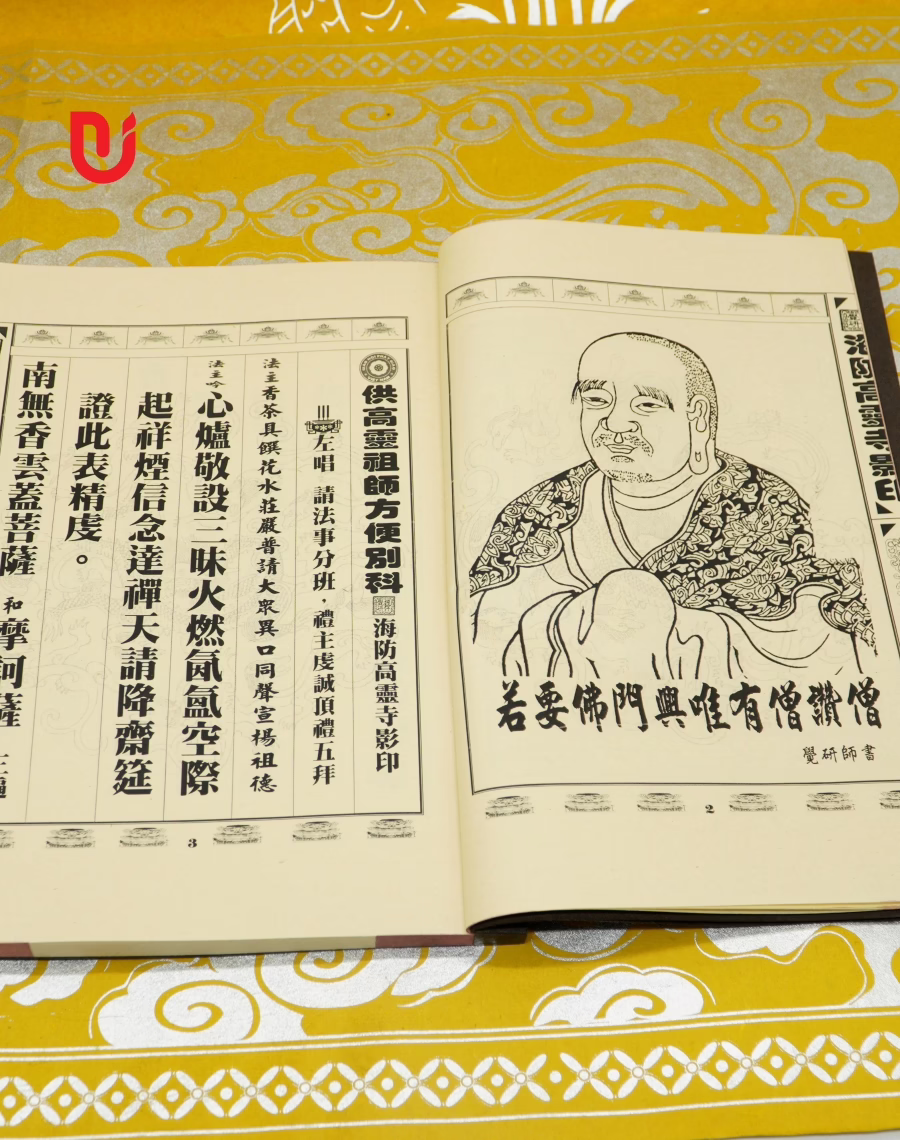 海防高靈寺影印
若要佛門興唯有僧讚僧
覺研師書
2
供高靈祖師方便別科 海防高靈寺影印
左唱 請法事分班，禮主虔誠頂禮五拜
法主香茶具饌花水莊嚴普請大眾異口同聲宣揚祖德
法主吟 心爐敬設三昧火燃氤氳空際
起祥煙信念達禪天請降齋筵
證此表精虔。
南無香雲蓋菩薩 和 摩訶薩 三遍
3